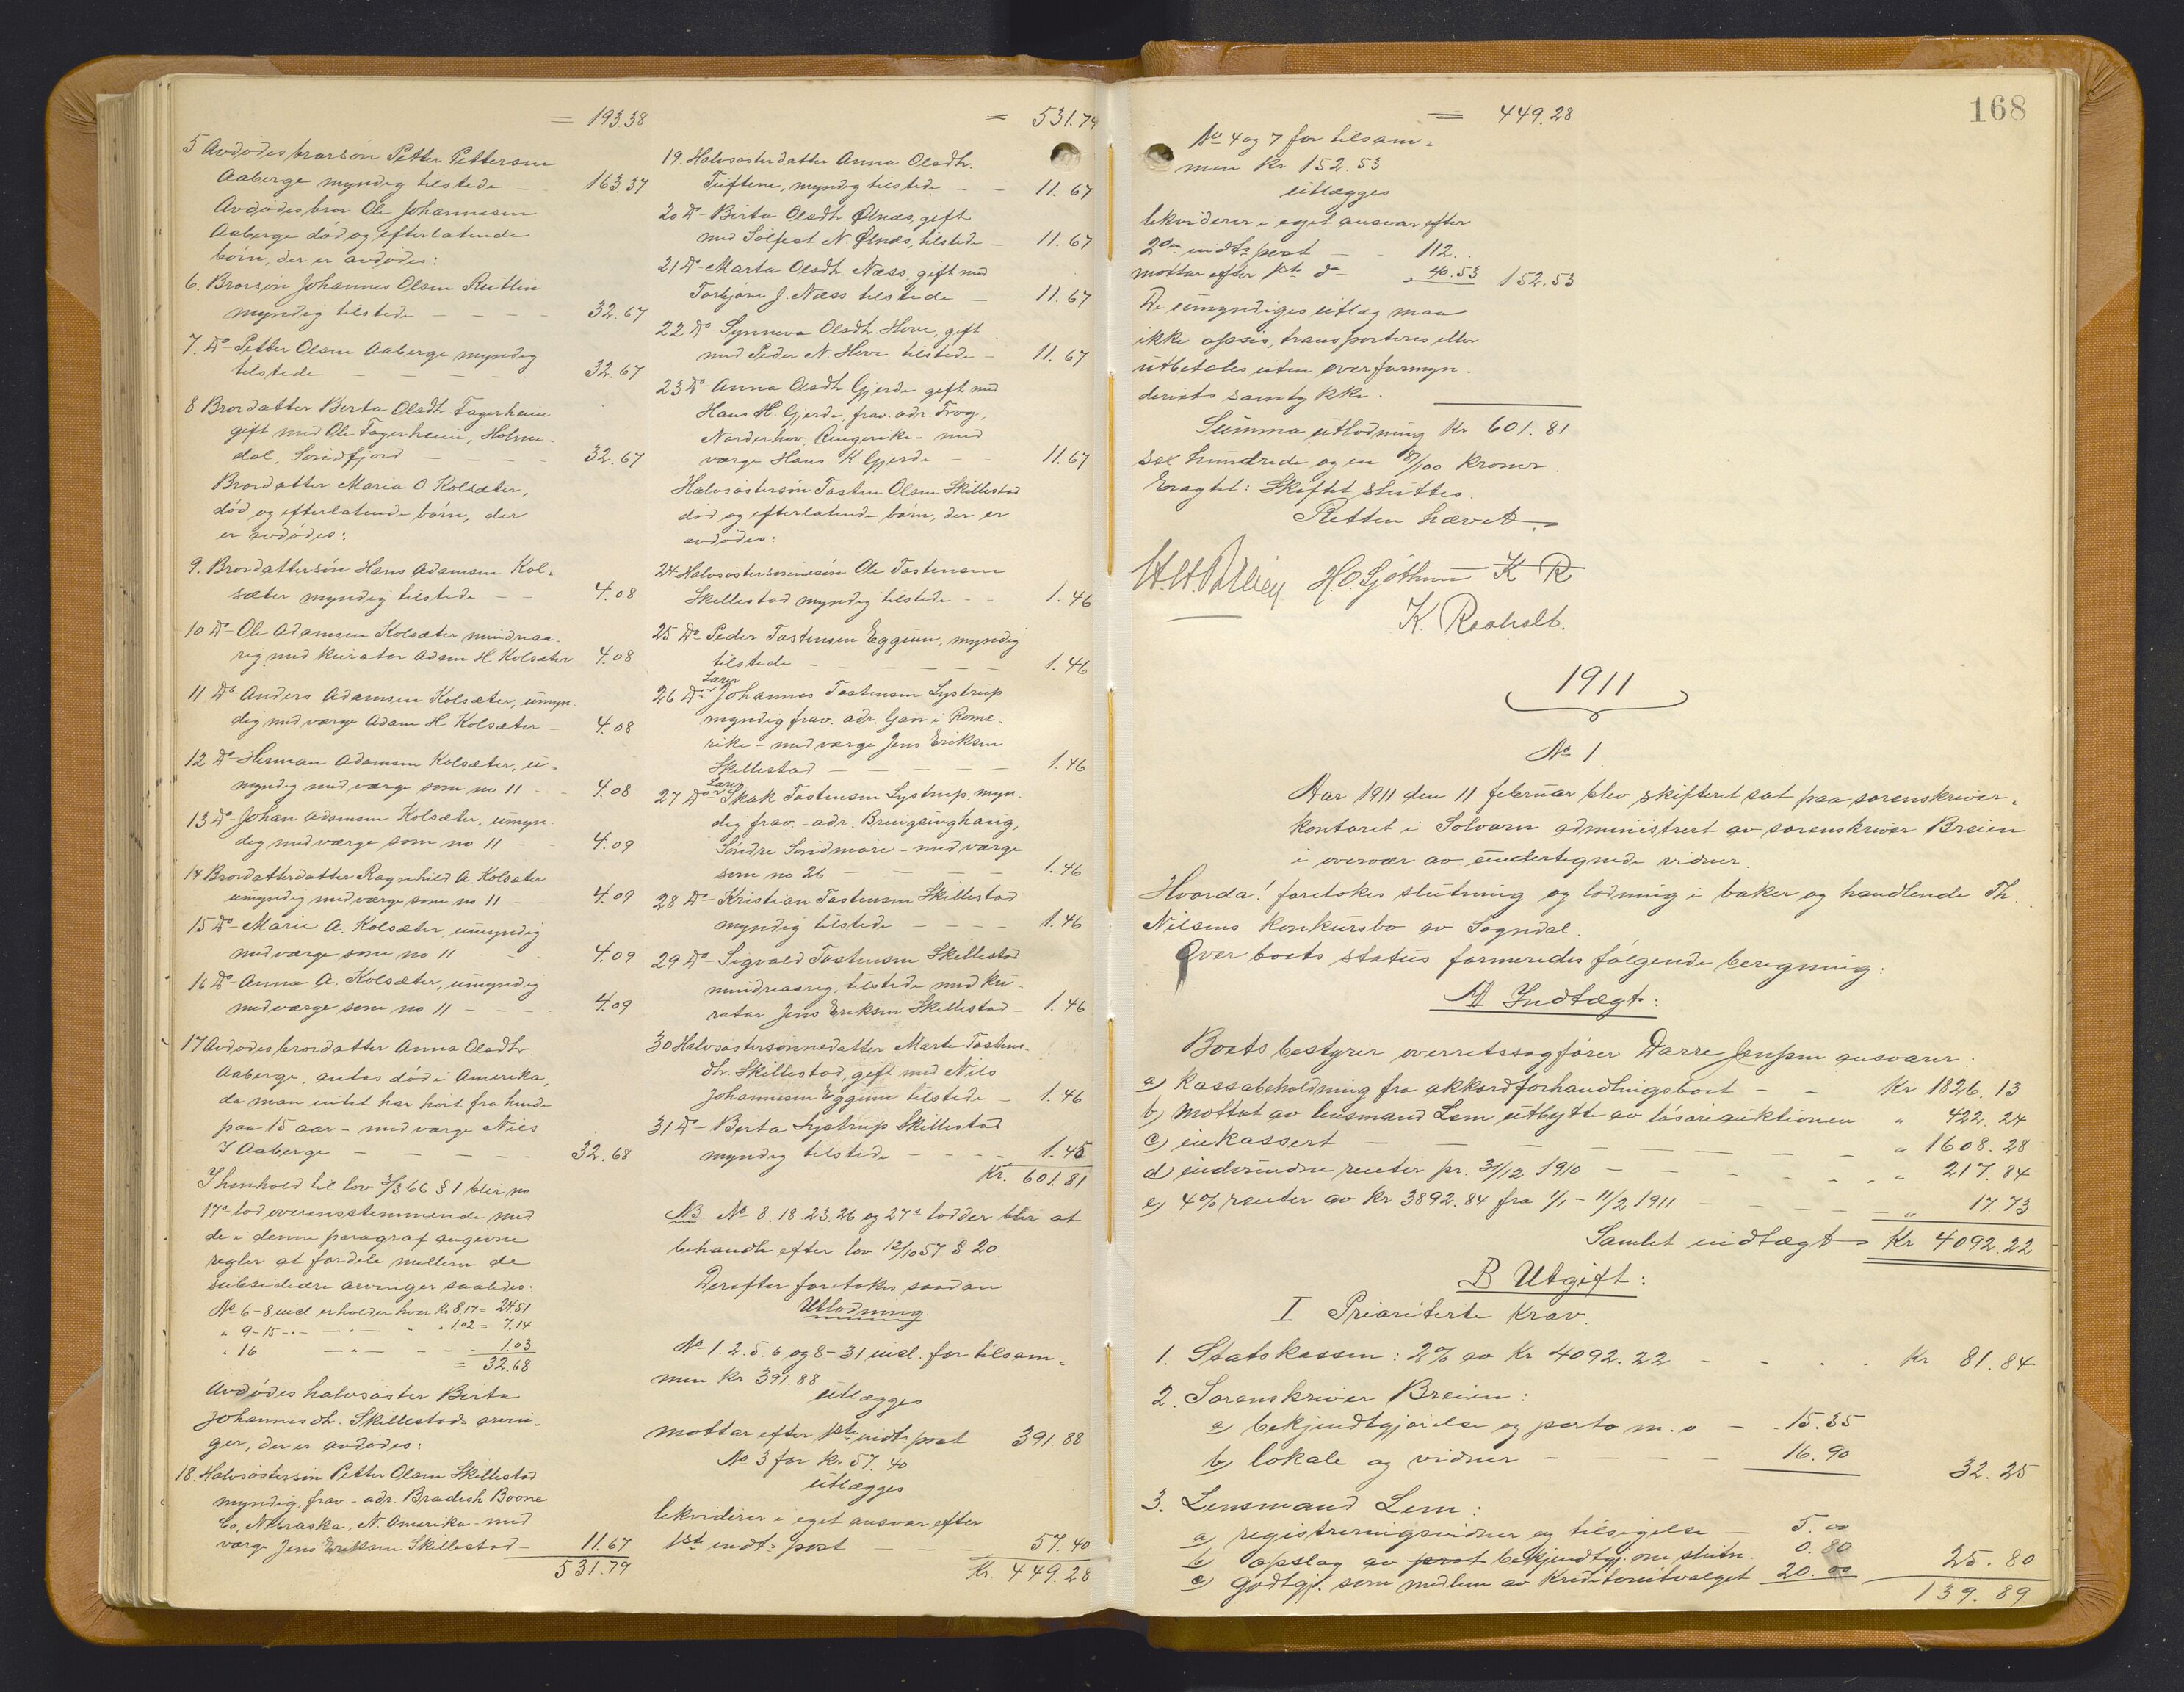 = 193.38
5 Avdødes brorsøn Petter Pettersen
Aaberge myndig tilstede — 163.37
Avdødes bror Ole Johannesen
Aaberge død og efterlatende
børn, der er avdødes:
6. Brorsøn Johannes Olsen Rutlin
myndig tilstede — — — — 32.67
7. Do - Petter Olsen Aaberge myndig
tilstede — — — — — 32.67
8 Brordatter Berta Olsdtr Fagerheim
gift med Ole Fagerheim, Holme-
dal, Søndfjord — — — 32.67
Brordatter Maria O Kolsæter,
død og efterlatende børn, der
er avdødes:
9. Brordattersøn Hans Adamsen Kol-
sæter myndig tilstede — — 4.08
10 Do - Ole Adamsen Kolsæter mindreaa-
rig med kurator Adam H Kolsæter 4.08
11 Do Anders Adamsen Kolsæter, umyn-
dig med værge Adam H Kolsæter — 4.08
12 Do - Herman Adamsen Kolsæter, u-
myndig med værge som no 11 - - 4.08
13 Do - Johan Adamsen Kolsæter, umyn-
dig med værge som no 11 - - 4.09
14 Brordatterdatter Ragnhild A. Kolsæter
umyndig med værge som no 11 - - 4.09
15 Do - Marie A. Kolsæter, umyndig
med værge som no 11 - - - 4.09
16 Do - Anna A. Kolsæter, umyndig
med værge som no 11 - - - 4.09
17 Avdødes brordatter Anna Olsdtr
Aaberge, antas død i Amerika,
da man intet har hørt fra hende
paa 15 aar - med værge Nils
I Aaberge — — — — — 32.68
I henhold til lov 3/3 66 § 1 blir no
17s lod overensstemmende med
de i denne paragraf angivne
regler at fordele mellem de
subsidiære arvinger saaledes:
No 6-8 incl erholder hver Kr 8.17 = 24.51
" 9-15 - . - — . — " " 1.02 = 7.14
" 16 — . — - - - 1.03
= 32.68
Avdødes halvsøster Berta
Johannesdtr. Skillestads arvin-
ger, der er avdødes:
18. Halvsøstersøn Petter Olsen Skillestad
myndig frav. - adr. Bradish Boone
Co, Nebraska, N. Amerika - med
værge Jens Eriksen Skillestad — 11.67
531.79
= 531.79
19. Halvsøsterdatter Anna Olsdtr.
Tuftene, myndig tilstede — — 11.67
20 Do - Birta Olsdtr Ølnæs, gift
med Solfest N. Ølnæs, tilstede — 11.67
21 Do - Marta Olsdtr. Næss, gift med
Torbjørn J. Næss tilstede — 11.67
22 Do Synneva Olsdtr Hove, gift
med Peder N. Hove tilstede — 11.67
23 Do - Anna Olsdtr Gjerde gift med
Hans H. Gjerde, frav. adr. Trog,
Norderhov, Ringerike - med
værge Hans K Gjerde — — 11.67
Halvsøstersøn Tosten Olsen Skillestad
død og efterlatende børn, der er
avdødes:
24 Halvsøstersønnesøn Ole Tostensen
Skillestad myndig tilstede — - 1.46
25 Do - Peder Tostensen Eggum, myndig
tilstede — — — — — — 1.46
Lars
26 Do Johannes Tostensen Lystrup
myndig frav. adr. Gan i Rome-
rike - med værge Jens Eriksen
Skillestad — — — — — 1.46
Lars
27 Do - Skak Tostensen Lystrup, myn-
dig frav. - adr. Bringsinghaug,
Søndre Søndmøre - med værge
som no 26 — — — — 1.46
28 Do - Kristian Tostensen Skillestad
myndig tilstede — — — — 1.46
29 Do - Sigvald Tostensen Skillestad
mindreaarig, tilstede med ku-
rator Jens Eriksen Skillestad — 1.46
30 Halvsøstersønnedatter Marta Tostens-
dtr. Skillestad, gift med Nils
Johannesen Eggum tilstede — 1.46
31 Do - Berta Lystrup Skillestad
myndig tilstede — — — - 1.45
Kr. 601.81
NB. No 8. 18. 23. 26 og 27s lodder blir at
behandle efter lov 12/10 57 § 20.
Derefter foretokes saadan
Utlodning.
No 1. 2. 5. 6 og 8-31 incl. for tilsam-
men Kr 391.88
utlægges
mottar efter 1ste indt. post 391.88
No 3 for Kr 57.40
utlægges
likviderer i eget ansvar efter
1ste indt: post — — — — 57.40
Kr. 449.28
168
= 449.28
No 4 og 7 for tilsam-
men Kr 152.53
utlægges
likviderer i eget ansvar efter
2den indts post — - 112..
mottar efter 1ste do — " 40.53 152.53
De umyndiges utlæg maa
ikke opsis, transporteres eller
utbetales uten overformyn-
deriets samtykke.
Summa utlodning Kr 601.81
sex hundrede og en 81/100 kroner.
Eragtet: Skiftet sluttes.
Retten hævet.
H. O. Sjøthun K R
K. Raaholt.
1911
No 1
Aar 1911 den 11 februar blev skifteret sat paa sorenskriver-
kontoret i Solvorn administrert av sorenskriver Breien
i overvær av undertegnede vidner.
Hvorda! foretokes slutning og lodning i baker og handlende Th.
Nilsens konkursbo av Sogndal.
Over boets status formeredes følgende beregning:
A Indtægt:
Boets bestyrer overretssagfører Darre Jenssen ansvarer:
a) Kassabeholdning fra akkordforhandlingsboet — — Kr 1826.13
b) mottat av lensmand Lem utbytte av løsøreauktionen " 422.24
c) inkassert — — — — — — — " 1608.28
d) indvundne renter pr. 31/12 1910 — — - - - " 217.84
e) 4% renter av Kr 3892.84 fra 1/1 - 11/2 1911 — — — " 17.73
Samlet indtægt Kr 4092.22
B Utgift:
I Prioriterte krav.
1. Statskassen: 2% av Kr 4092.22 - - - - Kr 81.84
2. Sorenskriver Breien:
a) bekjendtgjørelse og porto m. v — 15.35
b) lokale og vidner — — — — 16.90 32.25
3. Lensmand Lem:
a) registreringsvidner og tilsigelse — 5.00
b) opslag av prot bekjendtgj. om slutn. 0.80
c) godtgj. som medlem av kreditorutvalget 20.00 25.80
139.89